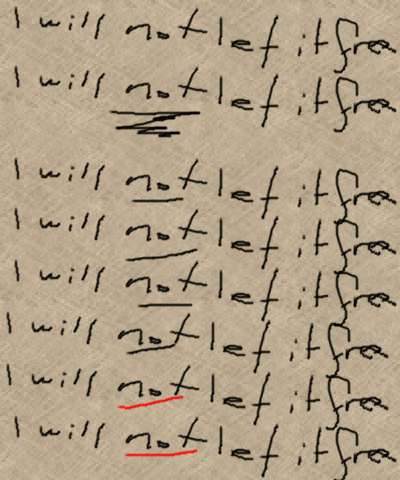 I will not lef it free
I will not lef it free
I will not lef it free
I will not lef it free
I will not lef it free
I will not lef it free
I will not lef it free
I will not lef it free